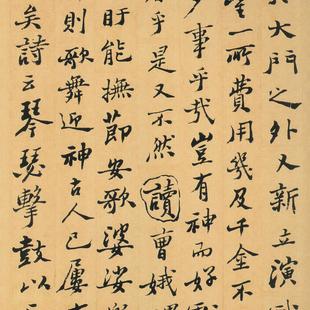 大門之外又新立演
一所費用幾及千金不
事乎哉豈有神而好
乎是又不然讀曹娥
盱能撫節安歌婆娑
則歌舞迎神古人已屢
矣詩云琴瑟擊鼓以